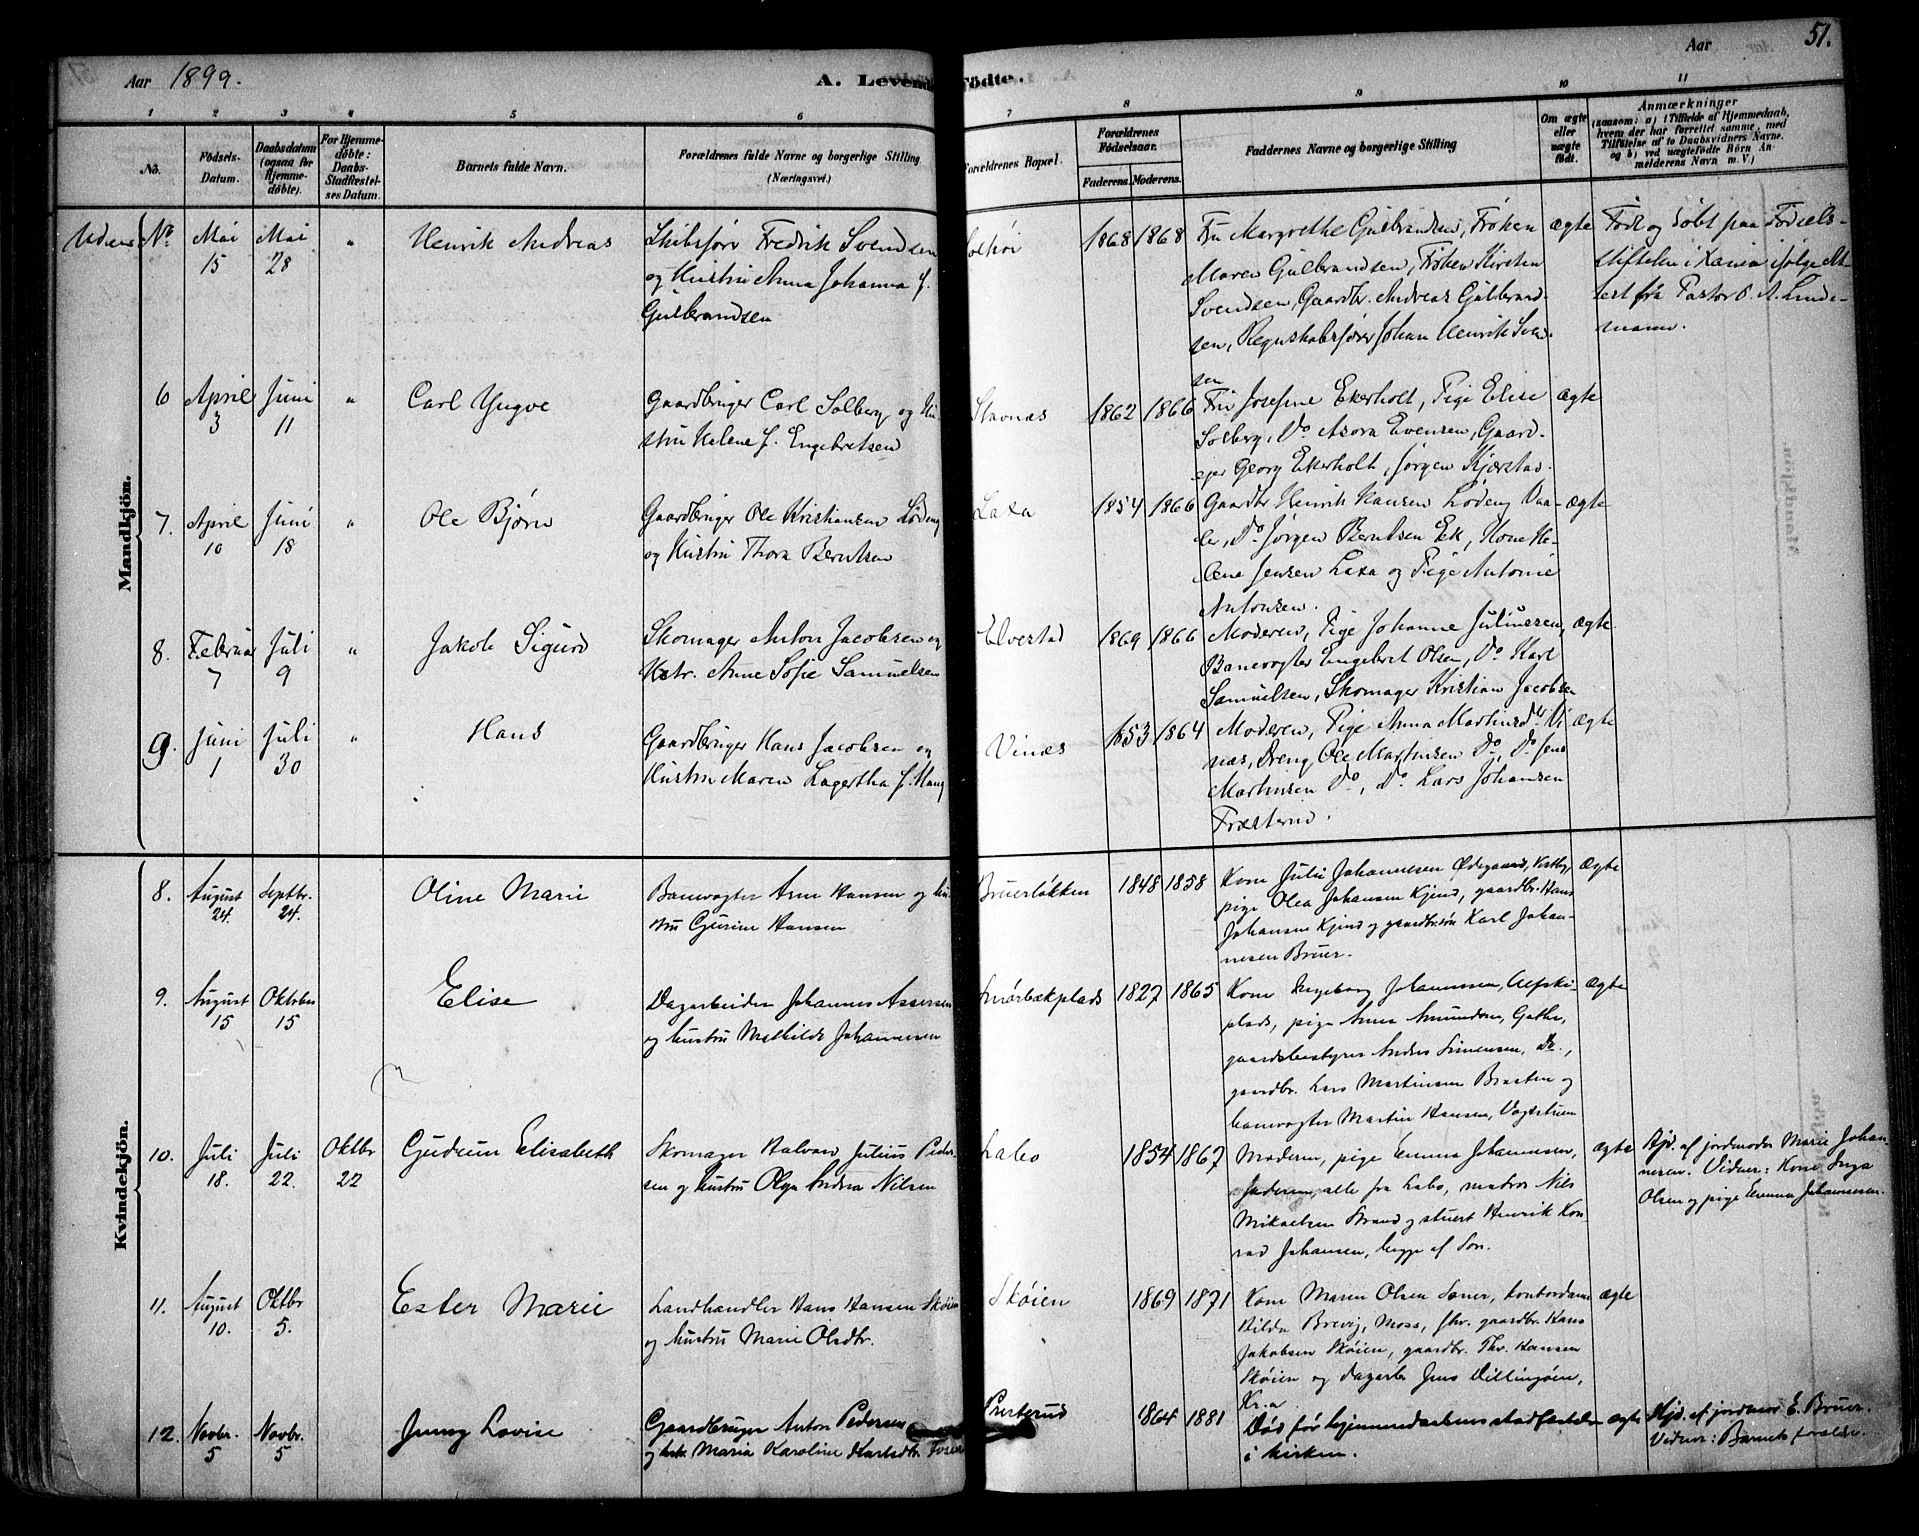 51.
Aar 1899.
A. Levende Födte.
Aar
1 2 3 4 5 6 7 8 9 10 11
No.
Födsels-Datum.
Daabsdatum (ogsaa for Hjemme-döbte).
For Hjemme-döbte: Daabs-Stadfæstelses Datum.
Barnets fulde Navn.
Forældrenes fulde Navne og borgerlige Stilling (Næringsvei.)
Forældrenes Bopæl.
Forældrenes Födselsaar.
Faderens. Moderens.
Faddernes Navne og borgerlige Stilling
Om ægte eller uægte födt.
Anmærkninger
(saasom: a) i Tilfælde af Hjemmedaab,
hvem der har forrettet samme, med
Tilföielse af to Daabsvidners Navne.
og b) ved uægtefödte Börn An-
melderens Navn m. V.)
Mandkjön.
Uden No. Mai 15 Mai 28 " Henrik Andreas
Skibsfører Fredrik Svendsen
og Hustru Anna Johanna f.
Gulbrandsen
Solhøi 1868 1868
Fru Margrethe Gulbrandsen, Frøken
Maren Gulbrandsen, Frøken Kirsten
Svendsen, Gaardbr. Andreas Gulbrand-
sen, Regnskabsfører Johan Henrik Svend-
sen
ægte
Født og døbt paa Fødsels-
stiftelsen i Xania ifølge At-
test fra Pastor P. A. Linde-
mann.
6 April 3 Juni 11 " Carl Yngve
Gaardbruger Carl Solberg og Hu-
stru Helene f. Engebretsen
Stavnæs 1862 1866
Fru Josefine Ekerholt, Pige Elise
Solberg, Do Asora Evensen, Gaard-
ejer Georg Ekerholt, Jørgen Kjærstad.
ægte
7. April 10 Juni 18 " Ole Bjørn
Gaardbruger Ole Kristiansen Lødeng
og Hustru Thora Berntsen
Laxa 1854 1866
Gaardbr Henrik Hansen Lødeng Vaa-
ler, Do Jørgen Berntsen Ek, Kone He-
lene Jensen Laxa og Pige Antonie
Antonsen.
ægte
8. Februar 7 Juli 9 " Jakob Sigurd
Skomager Anton Jacobsen og
Hstr. Anne Sofie Samuelsen
Elvestad 1869 1866
Moderen, Pige Johanne Juliussen,
Banevogter Engebret Olsen, Do Karl
Samuelsen, Skomager Kristian Jacobsen
ægte
9. Juni 1 Juli 30 " Hans
Gaardbruger Hans Jacobsen og
Hustru Maren Lagertha f. Haug
Vinæs 1853 1864
Moderen, Pige Anna Martinsdtr Vi-
næs, Dreng Ole Martinsen Do, Do Jens
Martinsen Do, Do Lars Johansen
Præsterud.
ægte
Kvindekjön.
8. August 24. Septbr. 24. Oline Marie
Banevogter Arne Hansen og hu-
stru Gurine Hansen
Bruerløkken 1848 1858
Kone Julie Johannesen Ødegaard, Vestby,
pige Olea Johansen Kjend, gaardbr. Hans
Johansen Kjend og gaardbr.søn Karl Johan-
nesen Bruer.
ægte
9. August 15 Oktober 15 Elise
Dagarbeider Johannes Assersen
og hustru Mathilde Johannesen
Smørbækplads 1827 1865
Kone Ingeborg Johannesen,
plads, pige Anna Amundsen,
gaardsbestyrer Anders Simensen, Do.,
gaardbr. Lars Martinsen Braaten og
banevogter Martin Hansen, Vogtstuen
ægte
10. Juli 18. Juli 22. Oktbr 22 Gudrun Elisabeth
Skomager Halvar Julius Peder-
sen og hustru Olga Andrea Nilsen
Labo 1854 1867
Moderen, pige Emma Johannesen,
Faderen, alle fra Labo, matros Nils
Mikaelsen Brand og stuert Henrik Kon-
rad Johansen, begge af Son.
ægte
Hjd. af jordmoder Marie Johan-
nesen. Vidner: Kone Inga
Olsen og pige Emma Johannesen.
11. August 10. Oktbr 5. Ester Marie
Landhandler Hans Hansen Skøien
og hustru Marie Olsdtr.
Skøien 1869 1871
Kone Maren Olsen Soner, kontordame
Hilda Brevig, Moss, fhv. gaardbr. Hans
Jakobsen Skøien, gaardbr. Thv. Hansen
Skøien og dagarb. Jens Dillingøen,
Kr.a
ægte
12. Novbr. 5 Novbr. 5 Jenny Lovise
Gaardbruger Anton Pedersen
og hstr. Maria Karoline Karlsdtr.
Presterud 1864 1881
Død før hjemmedaabens stadfæstelse
i kirken.
ægte
Hjd. af jordmor E. Bruer.
Vidner: Barnets forældre.